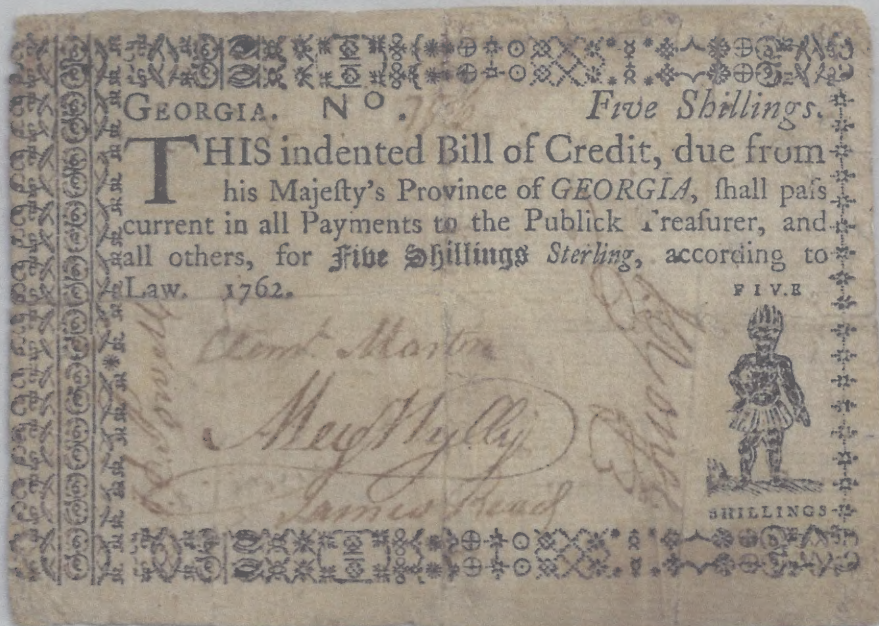 GEORGIA. Nº. Five Shillings.
THIS indented Bill of Credit, due from
his Majeſty's Province of GEORGIA, ſhall paſs
current in all Payments to the Publick Treaſurer, and
all others, for Five Shillings Sterling, according to
Law. 1762.
FIVE
Clemt Martin
Alex Wylly
James Read
Powell
SHILLINGS